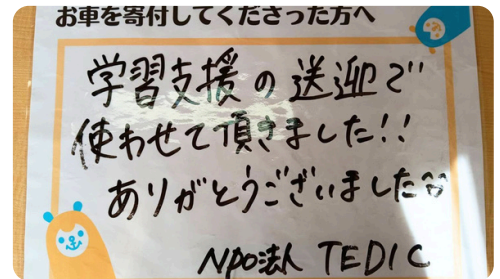 お車を寄付してくださった方へ
学習支援の送迎で
使わせて頂きました!!
ありがとうございました^^
NPO法人 TEDIC